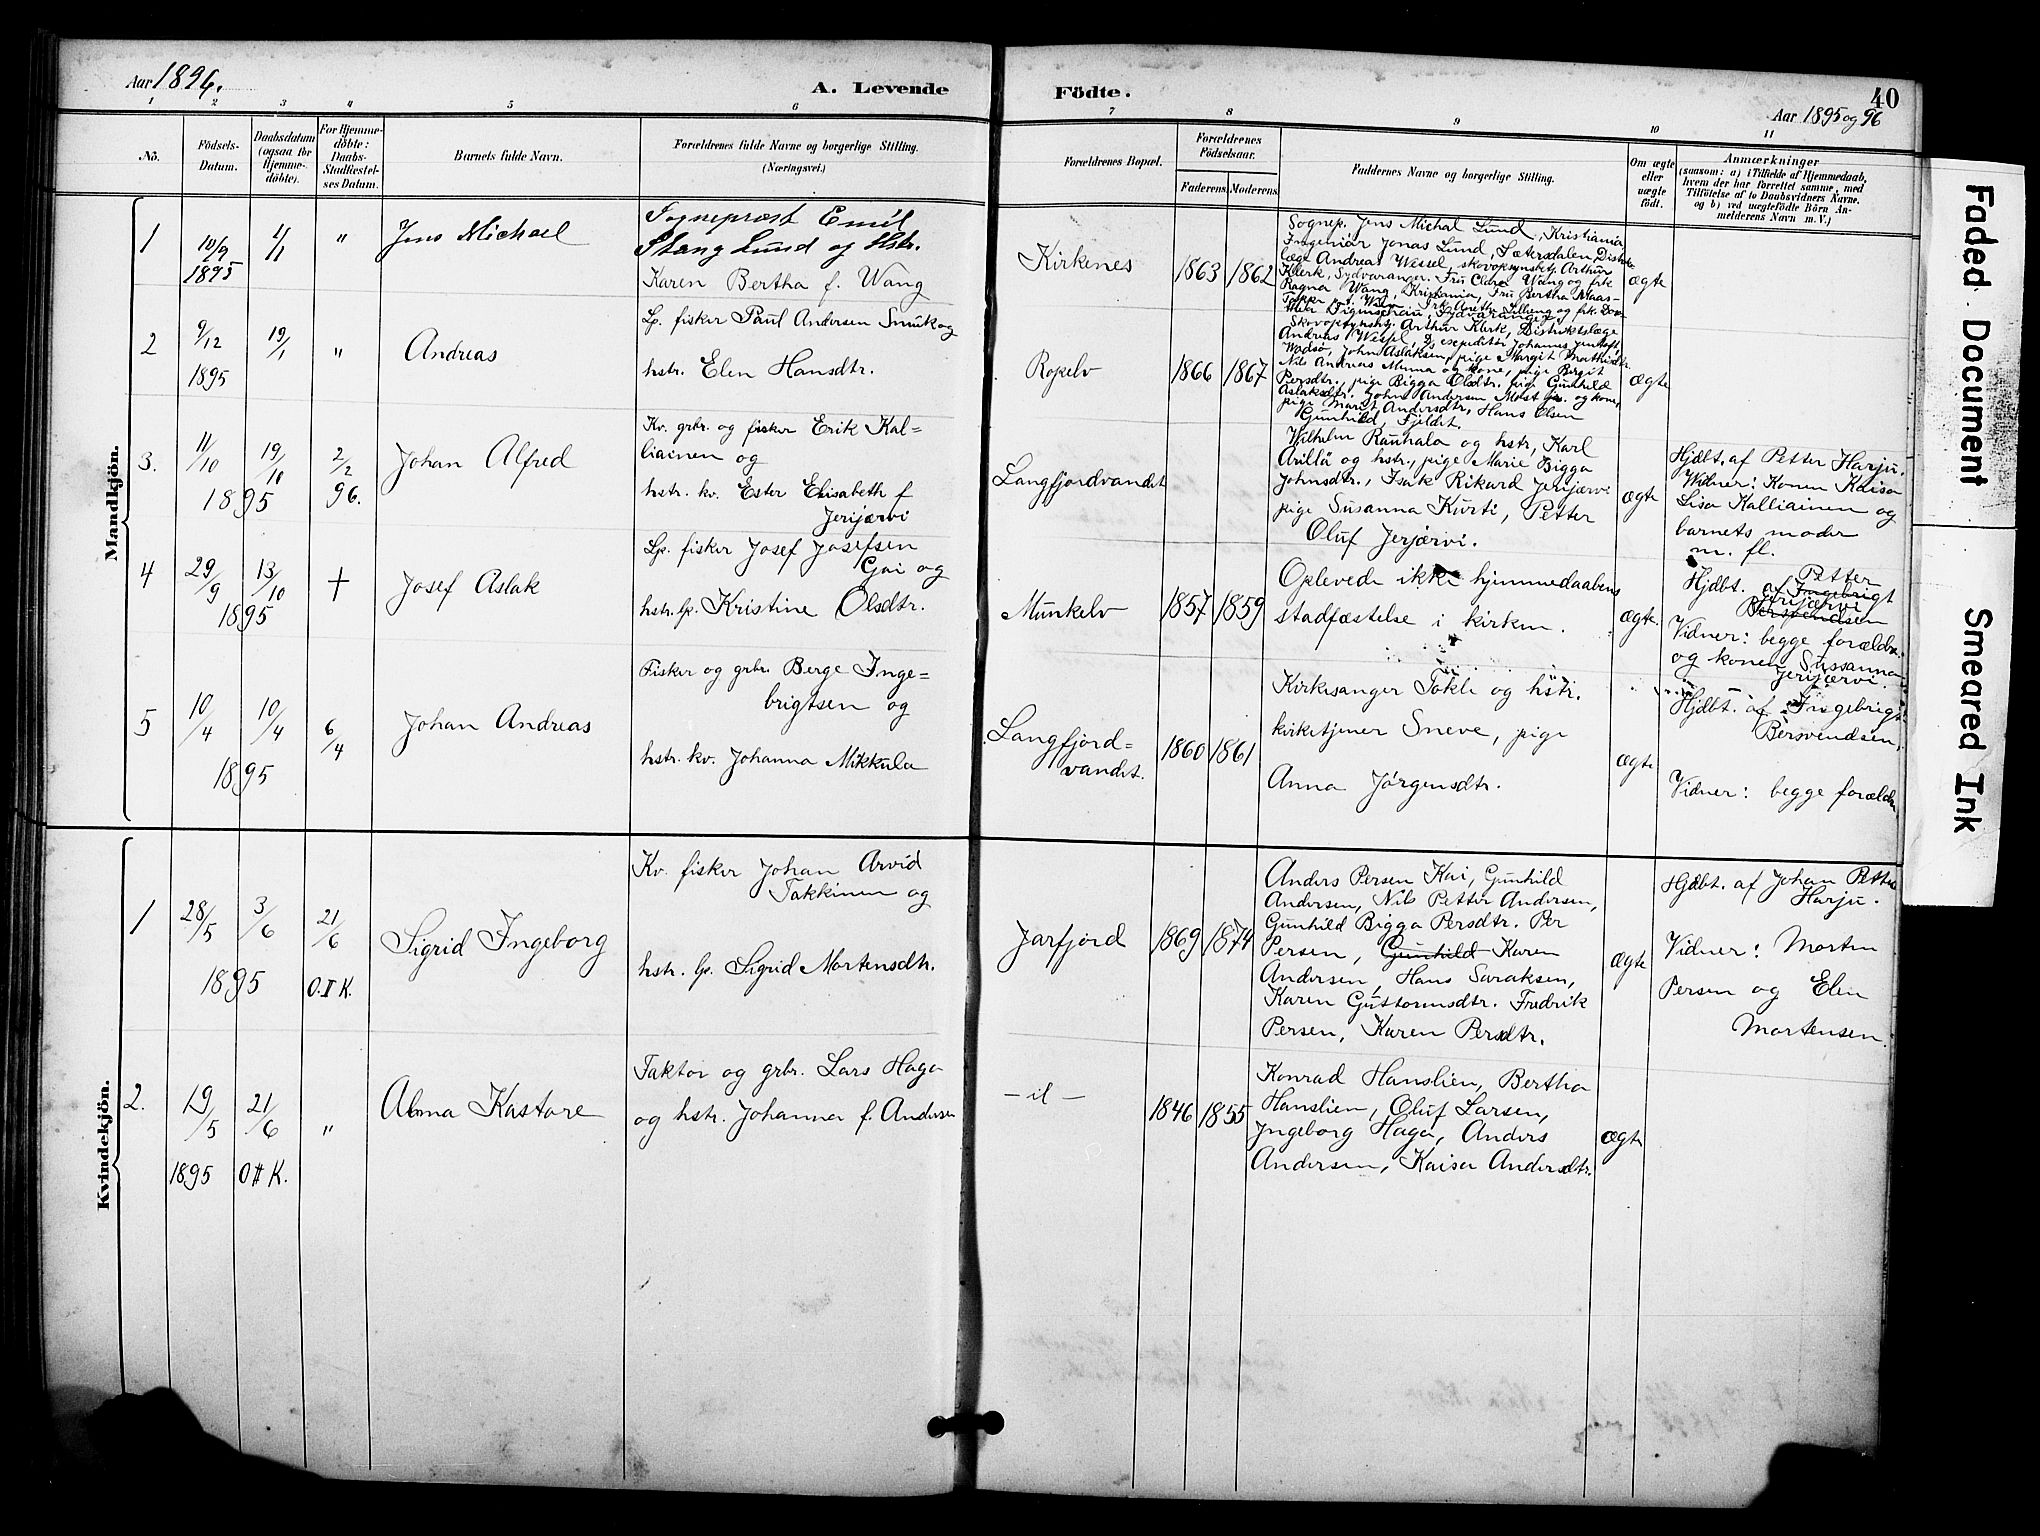 Aar 1896.
A. Levende
Födte.
40
Aar 1895 og 96
1 2 3 4 5 6 7 8 9 10 11
No.
Födsels-Datum.
Daabsdatum (ogsaa for Hjemme-döbte).
For Hjemme-döbte: Daabs-Stadfæstel-ses Datum.
Barnets fulde Navn.
Forældrenes fulde Navne og borgerlige Stilling.
(Næringsvei.)
Forældrenes Bopæl.
Forældrenes Födselsaar.
Faderens. Moderens.
Faddernes Navne og borgerlige Stilling.
Om ægte eller uægte födt.
Anmærkninger
(saasom: a) i Tilfælde af Hjemmedaab, hvem der har forrettet samme, med Tilföielse af to Daabsvidners Navne, og b) ved uægtefödte Börn An-melderens Navn m. V.)
Mandkjön.
1
10/9 1895
1/1
"
Jens Michael
Sognepræst Emil
Stang Lund og Hstr.
Karen Bertha f. Wang
Kirkenes
1863 1862
Sognep. Jens Michal Lund, Kristiania
Ingeniør Jonas Lund, Sætersdalen, Distrikts-
læge Andreas Wessel, skovopsynsbetj. Arthur
Klerk, Sydvaranger. Fru Clara Wang og frk
Ragna Wang, Kristiania, Fru Bertha Klaas-
ægte
2
9/12 1895
19/1
"
Andreas
Lp. fisker Paul Andersen Smuk og
hstr. Elen Hansdtr.
Ropelv
1866 1867
Skovopsynsbtj. Arthur Klerk, Distriktslæge
Andreas Wessel,
Wadsø, John Aslaksen, pige Margit
Nils Andreas Munna og kone, pige Birgit
Persdtr., pige Bigga Olsdtr. pige Gunhild
Aslaksdtr. John Andersen og kone,
pige Marit Andersdtr, Hans Olsen
Gunhild,
ægte
3.
11/10 1895
19/10
2/2 96.
Johan Alfred
Kv. grbr. og fisker Erik Kal=
liainen og
hstr. kv. Ester Elisabeth f
Jerijærvi
Langfjordvandet
Wilhelm Rauhala og hstr, Karl
Arillä og hstr., pige Marie Bigga
Johnsdtr., Isak Rikard Jerijærvi
pige Susanna Kurti, Petter
Oluf Jerjærvi.
ægte
Hjdbt. af Petter Harju.
Vidner: Konen Kaisa
Lisa Kalliainen og
barnets moder
m. fl.
4
29/9 1895
13/10
†
Josef Aslak
Lp. fisker Josef Josefsen
Gai og
hstr. lp. Kristine Olsdtr.
Munkelv
1857 1859
Oplevede ikke hjemmedaabens
stadfæstelse i kirken.
ægte.
Hjdbt. af Petter
Ingebrigt
Jerijærvi
Bersvendsen
Vidner: begge forældre
og konen Sussanna
Jerijærvi.
5
10/4 1895
10/4
6/4
Johan Andreas
Fisker og grbr. Berge Inge=
brigtsen og
hstr. kv. Johanna Mikkula
Langfjord=
vandet.
1860 1861
Kirkesanger Tokle og hstr.
kirketjener Sneve, pige
Anna Jörgensdtr.
ægte
Hjdbt. af Ingebrigt
Bersvendsen,
Vidner: begge forældre
Kvindekjön.
1
28/5 1895
3/6
21/6
O.I K.
Sigrid Ingeborg
Kv. fisker Johan Arvid
Takkinen og
hstr. lp. Sigrid Mortensdtr.
Jarfjord
1869 1874
Anders Persen Kai, Gunhild
Andersen, Nils Petter Andersen,
Gunhild Bigga Persdtr. Per
Persen, Gunhild Karen
Andersen, Hans Saraksen,
Karen Gustormsdtr. Fredrik
Persen, Karen Persdtr.
ægte
Hjdbt. af Johan Petter
Harju.
Vidner: Morten
Persen og Elen
Mortensen.
2.
19/5 1895
21/6
O II K.
"
Anna Kastore
Faktor og grbr. Lars Haga
og hstr. Johanna f. Andersen
– il –
1846 1855
Konrad Hanslien, Bertha
Hanslien, Oluf Larsen,
Ingeborg Haga, Anders
Andersen, Kaisa Andersdtr.
ægte
Faded Document
Smeared Ink